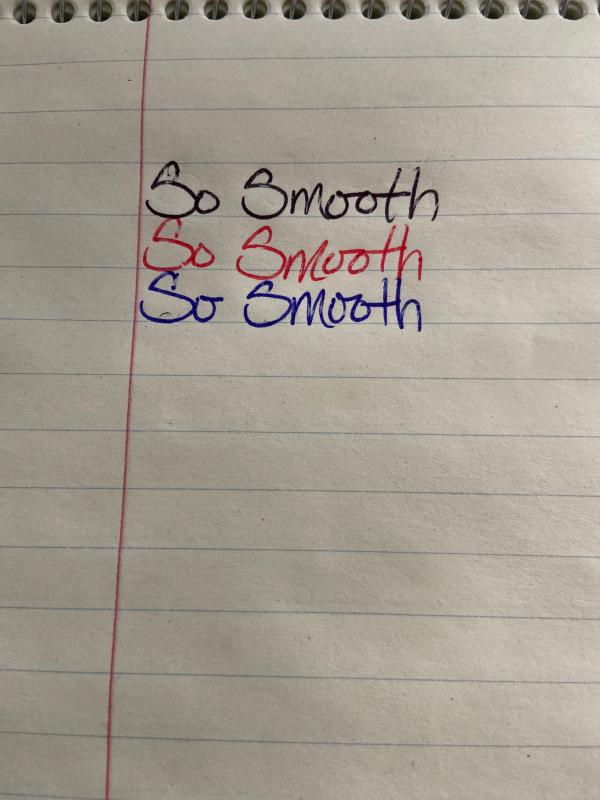 So Smooth
So Smooth
So Smooth